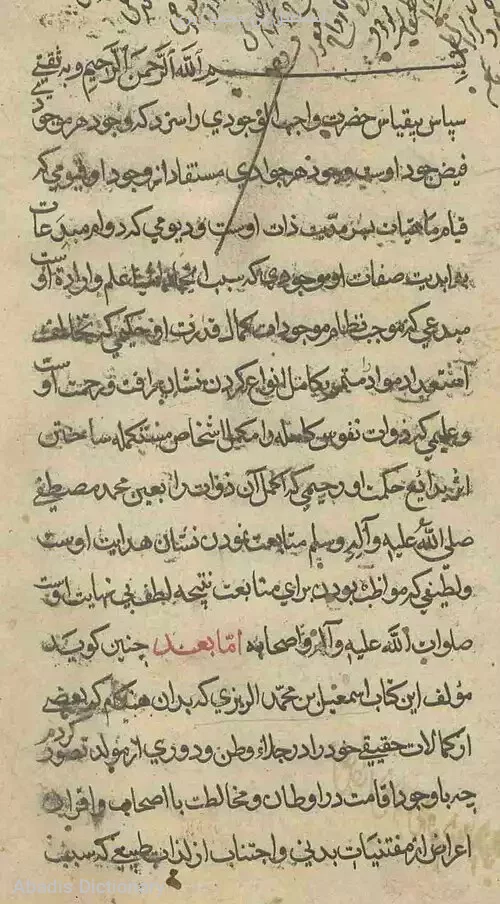 بسم الله الرحمن الرحيم وبه ثقتي
سپاس بیقیاس حضرت واجب الوجودی را سزد که وجود هر موجود
فیض جود اوست و جود هر جوادی مستفاد از وجود او قیومی که
قیام ماهیات بسرمدیت ذات اوست و دیومی که دوام مبدعات
بابدیت صفات او موجودی که سبب اشیا علم و اراده اوست
مبدعی که موجب نظام موجودات کمال قدرت او حکیمی که
استعداد مواد کامل انواع کردن نشان رافت و رحمت اوست
و علیمی که ذوات نفوس کامله را مکمل اشخاص مستکمله ساختن
اثر بدائع حکمت او رحیمی که اکمل آن ذوات را بعین محمد مصطفی
صلی الله علیه و آله وسلم متابعت نمودن نشان هدایت اوست
ولطیفی که مواظب بودن برای متابعت نتیجه لطف بی نهایت اوست
صلوات الله علیه و آله و اصحابه اما بعد چنین کوید
مؤلف این کتاب اسمعیل بن محمد الریزی که بدان هنکام که بعضی
از کمالات حقیقی خود را در جلاء وطن و دوری از مولد تصور کردم
چه با وجود اقامت در اوطان و مخالطت با اصحاب و اقران
اعراض از مقتنیات بدنی و اجتناب از لذات طبیعی که سبب
Abadis Dictionary